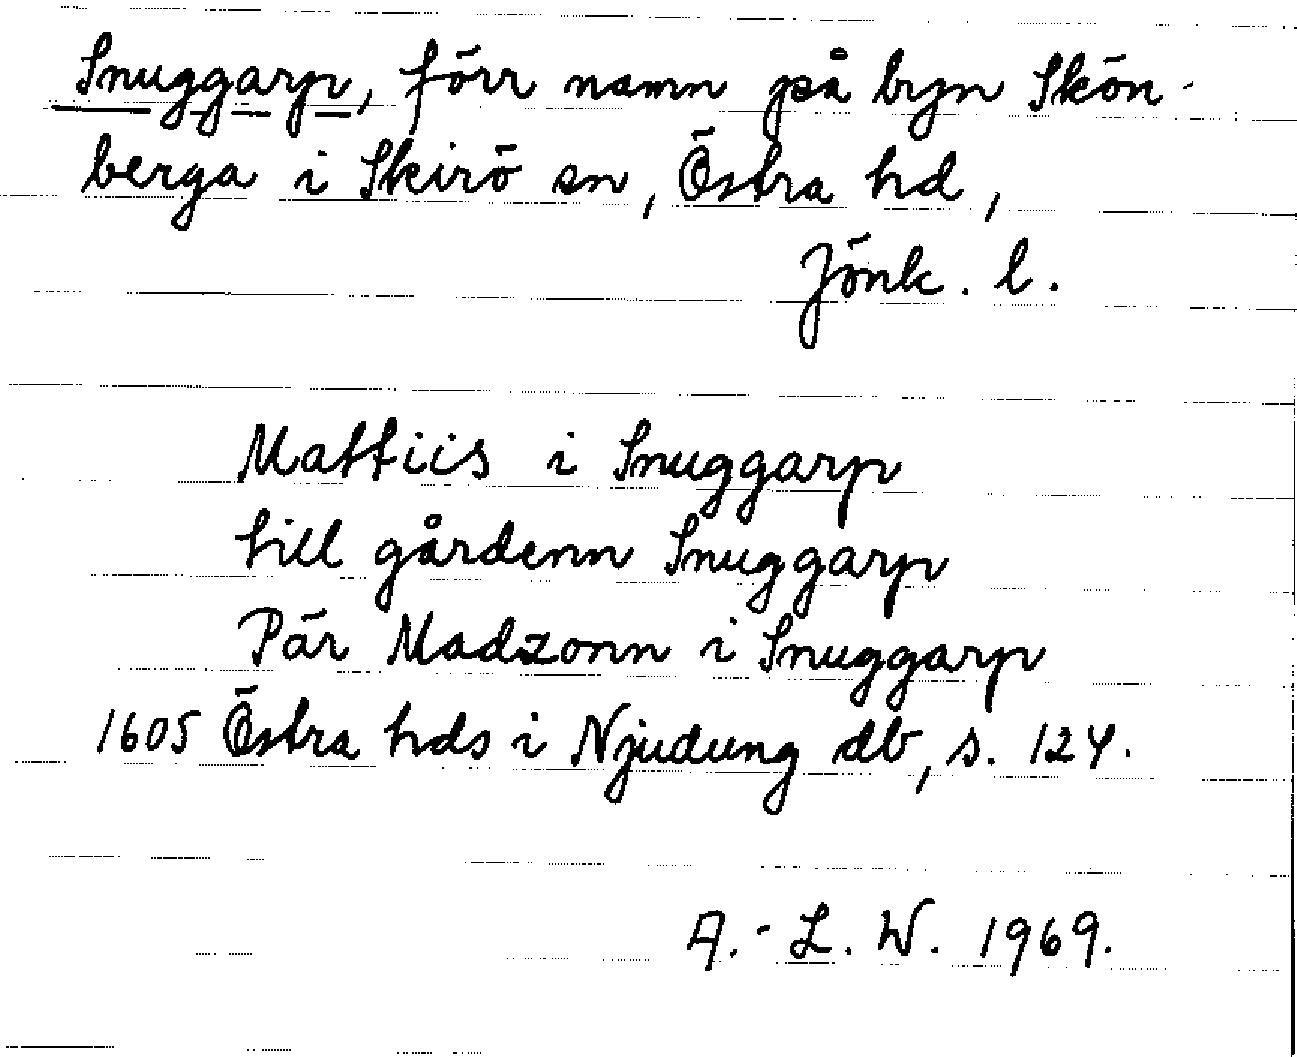 Snuggarp, förr namn på byn Skön-
berga i Skirö sn, Östra hd,
Jönk. l.
Mattiis i Snuggarp
till gårdenn Snuggarp
Pär Madzonn i Snuggarp
1605 Östra hds i Njudung db, s. 124.
A.-L. W. 1969.